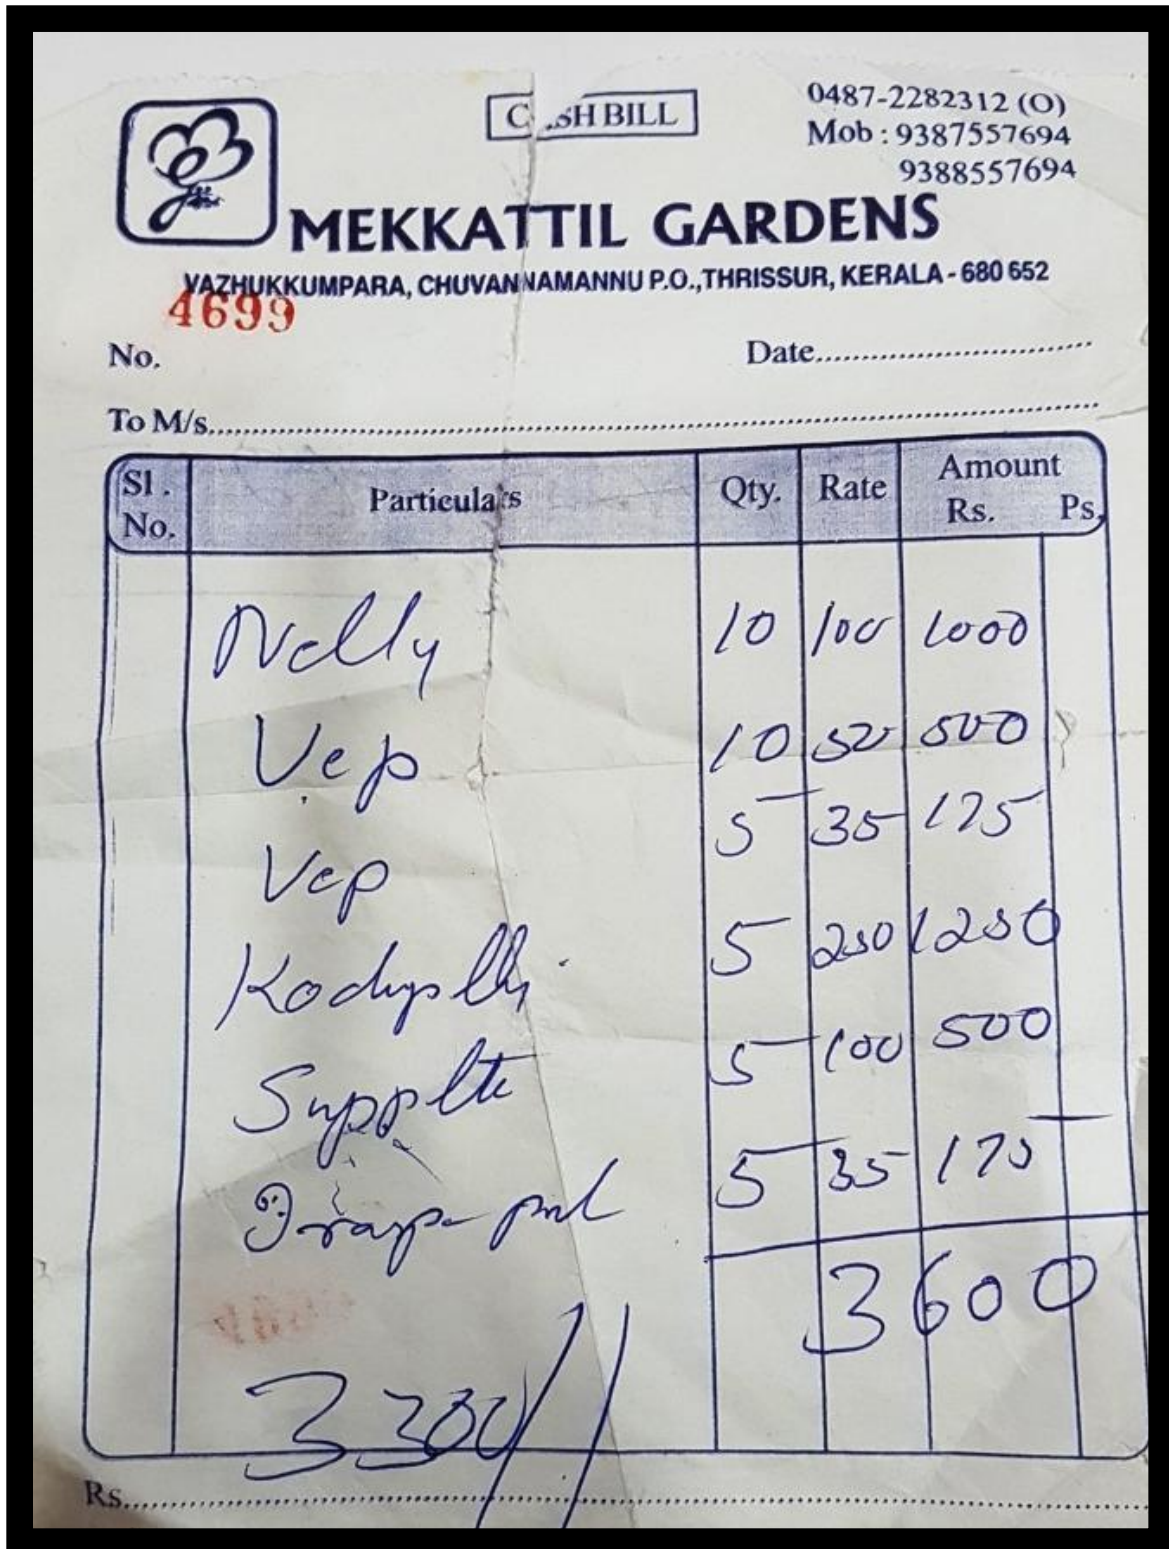 CASH BILL
0487-2282312 (O)
Mob : 9387557694
9388557694
MEKKATTIL GARDENS
VAZHUKKUMPARA, CHUVANNAMANNU P.O., THRISSUR, KERALA - 680 652
4699
No.
Date
To M/s
Sl. No. Particulars Qty. Rate Amount Rs. Ps.
Nelly 10 100 1000
Vep 10 50 500
Vep 5 35 175
5 250 1250
5 100 500
5 35 175
3600
3300//
Rs.